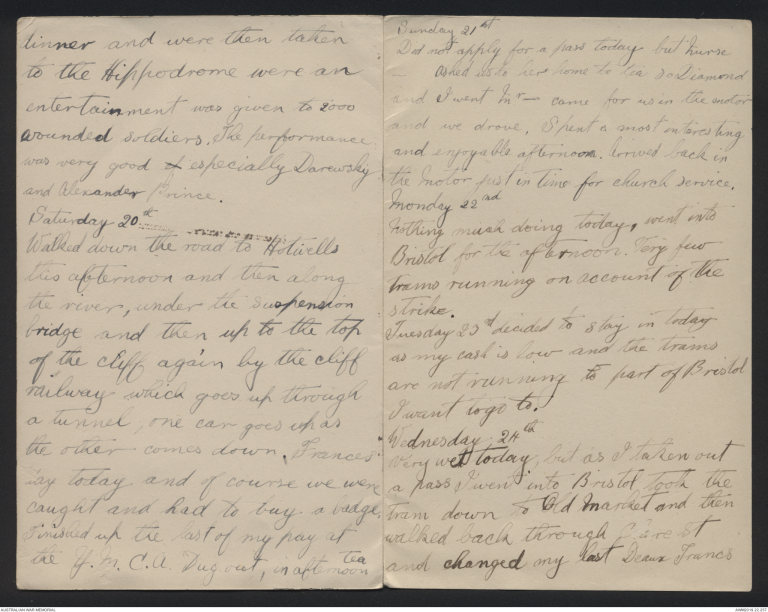 dinner and were then taken
to the Hippodrome were an
entertainment was given to 2000
wounded soldiers. The performance
was very good & especially Darewsky
and Alexander Prince.
Saturday 20th
Walked down the road to Hotwells
this afternoon and then along
the river, under the suspension
bridge and then up to the top
of the cliff again by the cliff
railway which goes up through
a tunnel, one car goes up as
the other comes down. Frances'
day today and of course we were
caught and had to buy a badge.
Finished up the last of my pay at
the Y.M.C.A. "Dug out", in afternoon tea
Sunday 21st
Did not apply for a pass today but nurse
— asked us to her home to tea so Diamond
and I went Mr — came for us in the motor
and we drove. Spent a most interesting
and enjoyable afternoon. Arrived back in
the motor just in time for church service.
Monday 22nd
Nothing much doing today, went into
Bristol for the afternoon. Very few
trams running on account of the
strike.
Tuesday 23rd decided to stay in today
as my cash is low and the trams
are not running to part of Bristol
I want to go to.
Wednesday 24th
Very wet today, but as I taken out
a pass I went into Bristol took the
tram down to Old Market and then
walked back through Clare St
and changed my last Deaux Francs
AUSTRALIAN WAR MEMORIAL